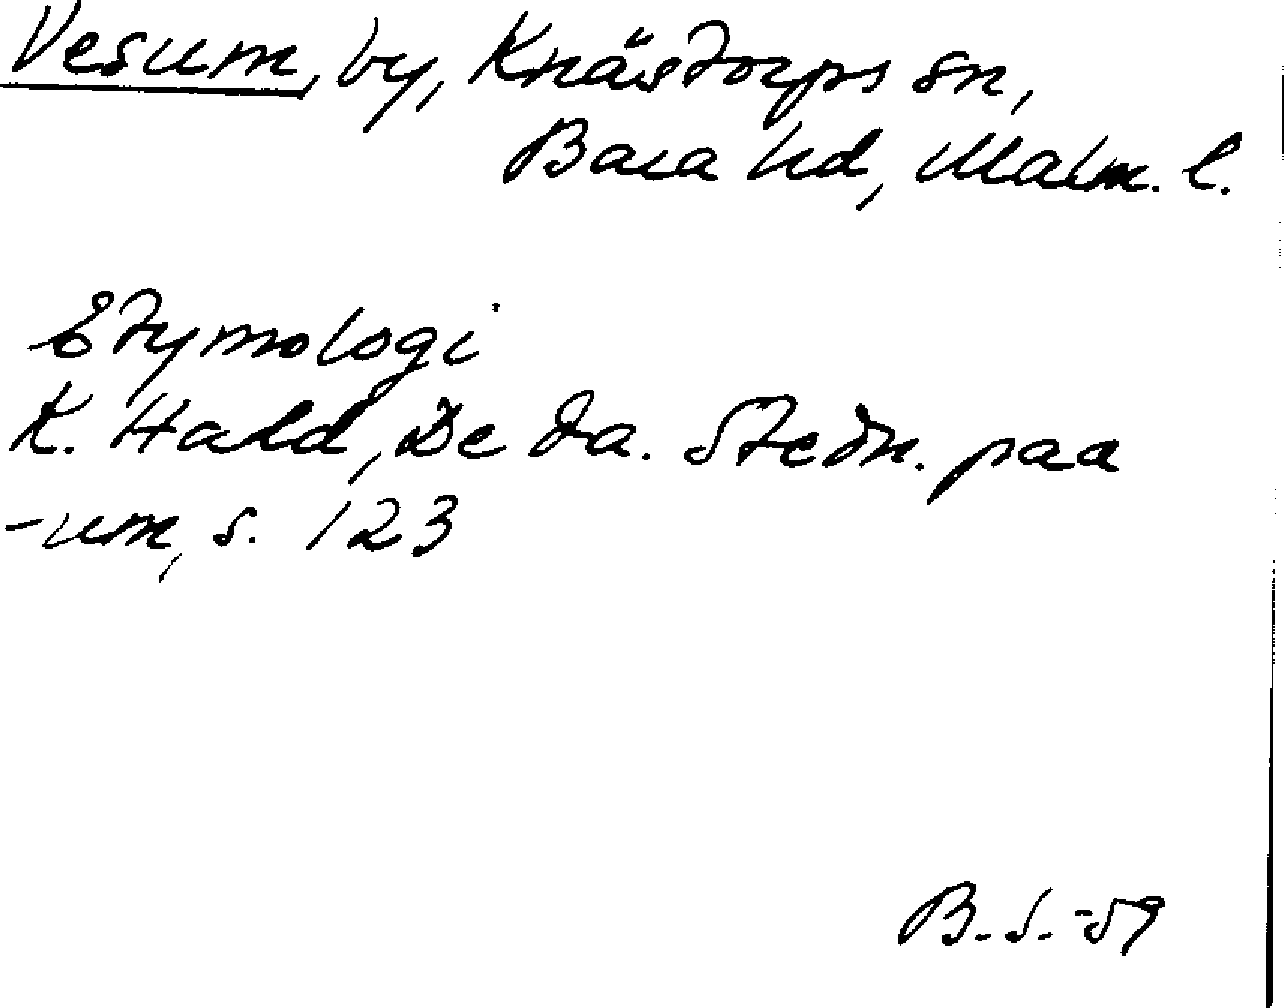 Vesum, by, Knästorps sn,
Bara hd, Malm. l.
Etymologi
K. Hald, De da. Stedn. paa
-um, s. 123
B.S.-59